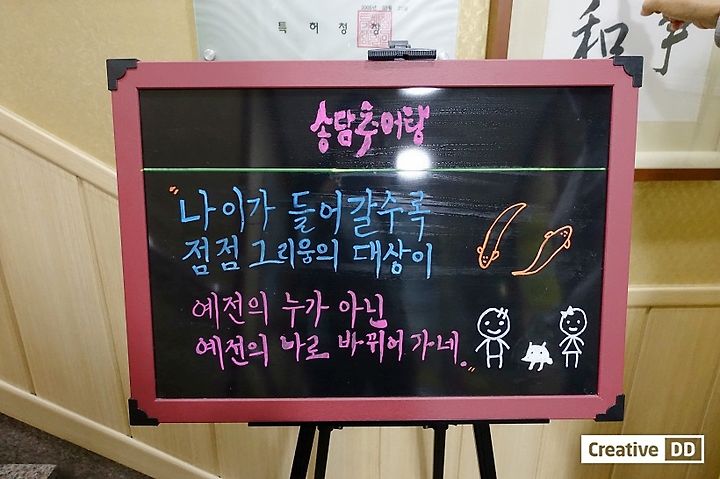 특허청장
和
송담추어탕
"나이가 들어갈수록
점점 그리움의 대상이
예전의 누가 아닌
예전의 나로 바뀌어가네."
Creative DD